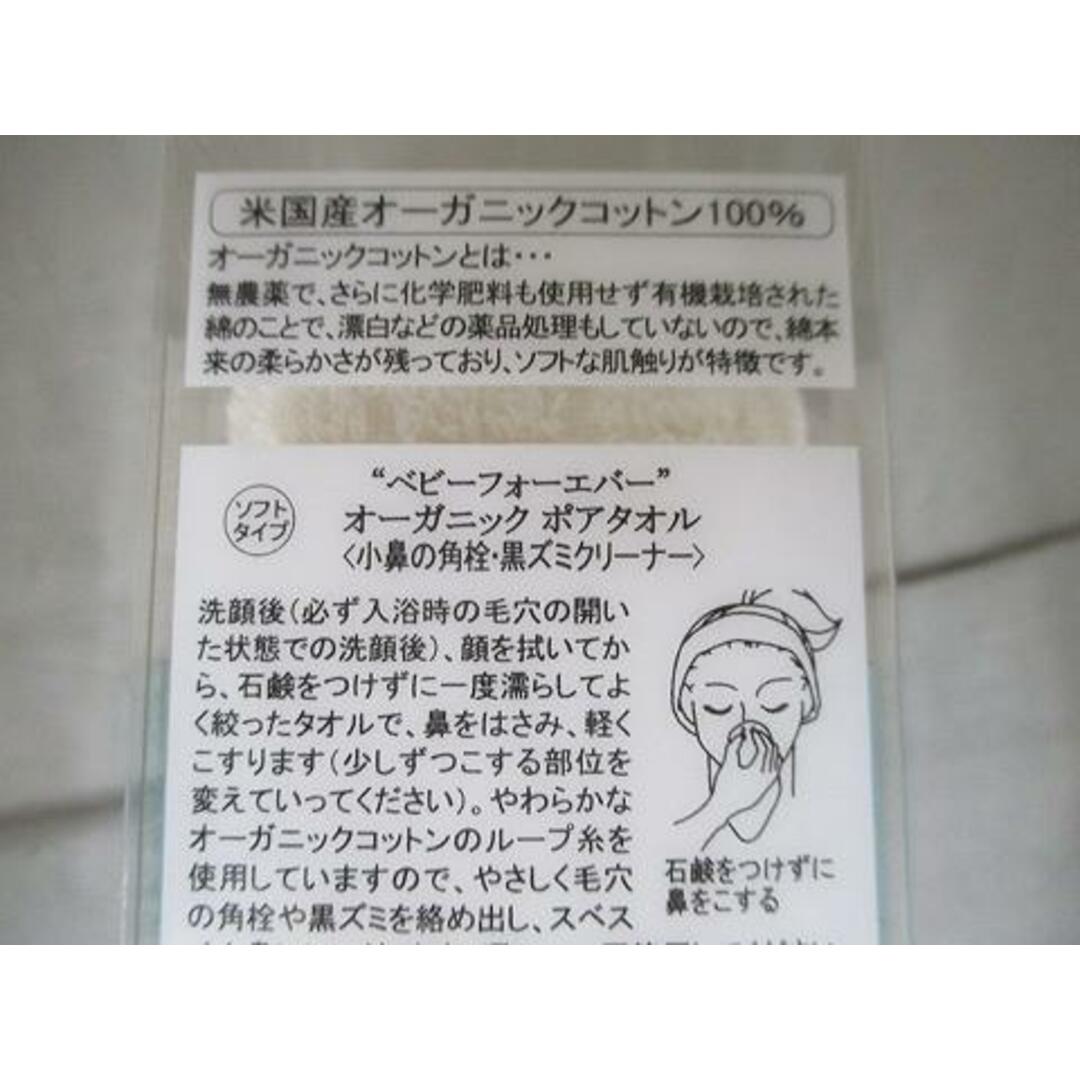 米国産オーガニックコットン100%
オーガニックコットンとは･･･
無農薬で、さらに化学肥料も使用せず有機栽培された
綿のことで、漂白などの薬品処理もしていないので、綿本
来の柔らかさが残っており、ソフトな肌触りが特徴です。
ソフト
タイプ
“ベビーフォーエバー”
オーガニック ポアタオル
〈小鼻の角栓・黒ズミクリーナー〉
洗顔後(必ず入浴時の毛穴の開い
た状態での洗顔後)、顔を拭いてか
ら、石鹸をつけずに一度濡らしてよ
く絞ったタオルで、鼻をはさみ、軽く
こすります(少しずつこする部位を
変えていってください)。やわらかな
オーガニックコットンのループ糸を
使用していますので、やさしく毛穴
の角栓や黒ズミを絡め出し、スベス
石鹸をつけずに
鼻をこする